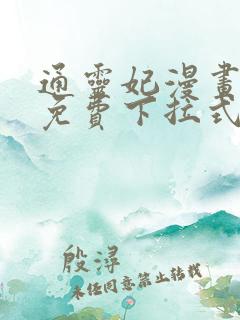 通靈妃漫畫
免費下拉式
殷潯
未經同意禁止轉載